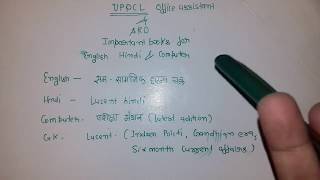 UPPCL Office assistant
&
ARO
Important books for
English Hindi & Computer
English - एस
Hindi - Lucent hindi
Computer (latest edition)
G.K. Lucent (Indian Politi, Gandhian era,
Six month current affairs)